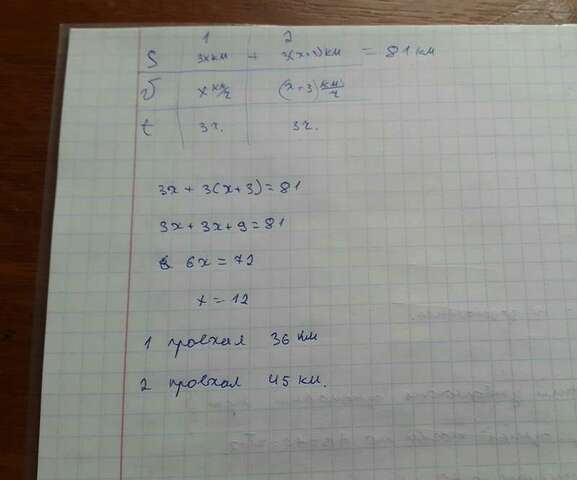 1 2
S 3x км + 3(x+3) км = 81 км
V x км/ч (x+3) км/ч
t 3ч. 3ч.
3x + 3(x+3) = 81
3x + 3x + 9 = 81
6x = 72
x = 12
1 проехал 36 км
2 проехал 45 км.